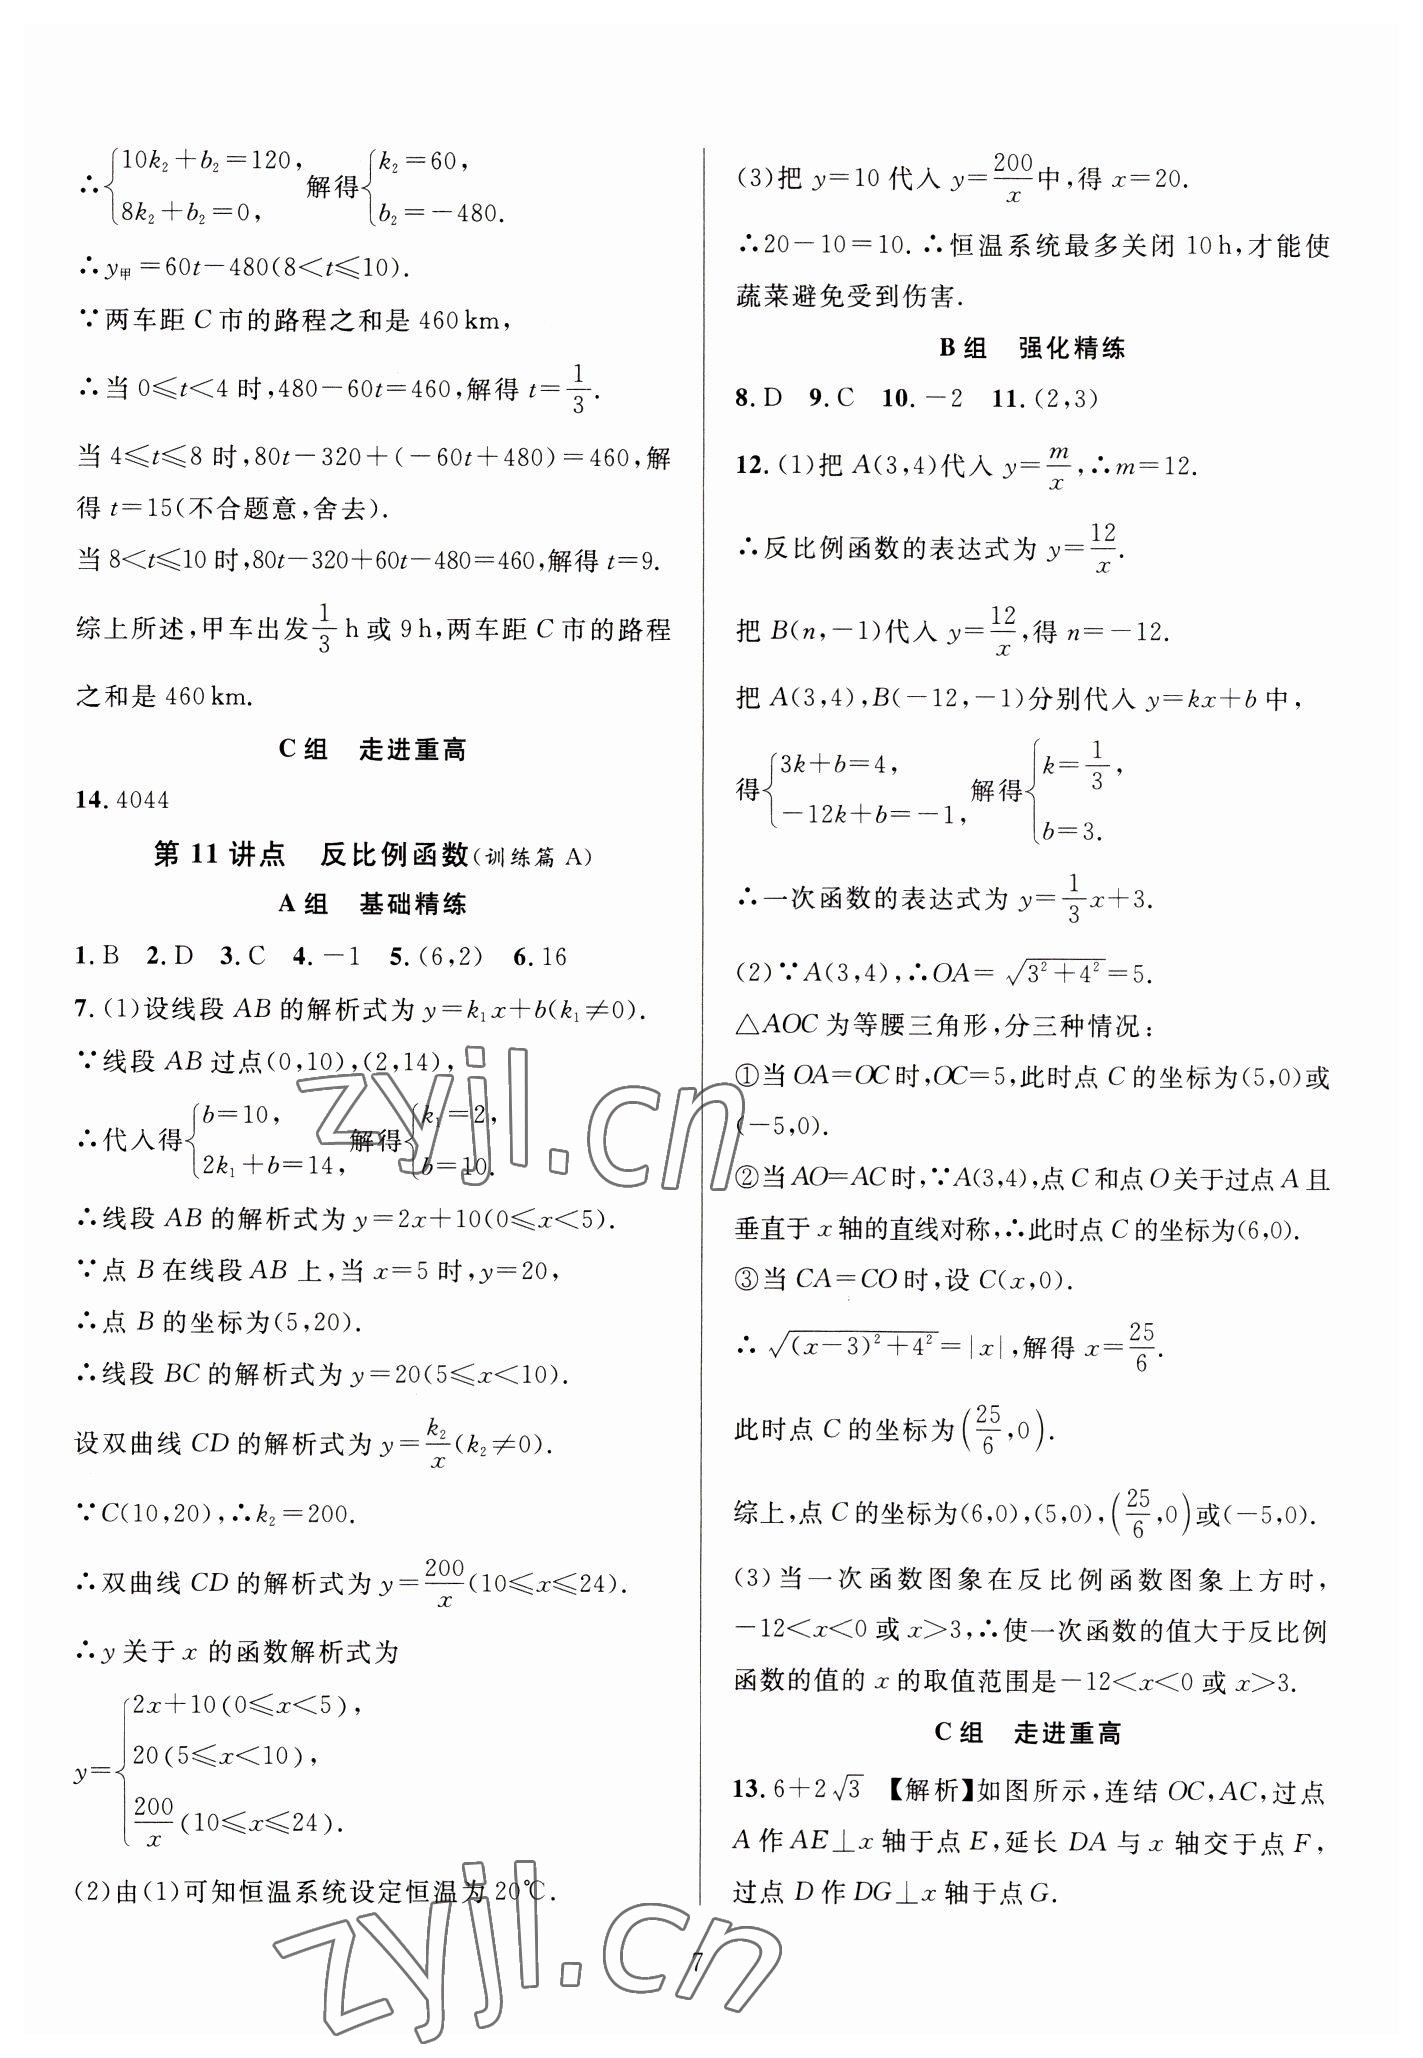 ∴{10k₂+b₂=120, 8k₂+b₂=0, 解得{k₂=60, b₂=-480.
∴y甲=60t-480(8<t⩽10).
∵两车距 C 市的路程之和是 460 km,
∴当 0⩽t<4 时,480-60t=460,解得 t=1/3.
当 4⩽t⩽8 时,80t-320+(-60t+480)=460,解
得 t=15(不合题意,舍去).
当 8<t⩽10 时,80t-320+60t-480=460,解得 t=9.
综上所述,甲车出发1/3 h 或 9 h,两车距 C 市的路程
之和是 460 km.
C 组 走进重高
14. 4044
第 11 讲点 反比例函数(训练篇 A)
A 组 基础精练
1. B 2. D 3. C 4. -1 5. (6,2) 6. 16
7. (1)设线段 AB 的解析式为 y=k₁x+b(k₁≠0).
∵线段 AB 过点(0,10),(2,14),
∴代入得{b=10, 2k₁+b=14, 解得{k₁=2, b=10.
∴线段 AB 的解析式为 y=2x+10(0⩽x<5).
∵点 B 在线段 AB 上,当 x=5 时,y=20,
∴点 B 的坐标为(5,20).
∴线段 BC 的解析式为 y=20(5⩽x<10).
设双曲线 CD 的解析式为 y=k₂/x(k₂≠0).
∵C(10,20),∴k₂=200.
∴双曲线 CD 的解析式为 y=200/x(10⩽x⩽24).
∴y 关于 x 的函数解析式为
y={2x+10(0⩽x<5), 20(5⩽x<10), 200/x(10⩽x⩽24).
(2)由(1)可知恒温系统设定恒温为 20℃.
(3)把 y=10 代入 y=200/x中,得 x=20.
∴20-10=10. ∴恒温系统最多关闭 10 h,才能使
蔬菜避免受到伤害.
B 组 强化精练
8. D 9. C 10. -2 11. (2,3)
12. (1)把 A(3,4)代入 y=m/x,∴m=12.
∴反比例函数的表达式为 y=12/x.
把 B(n,-1)代入 y=12/x,得 n=-12.
把 A(3,4),B(-12,-1)分别代入 y=kx+b 中,
得{3k+b=4, -12k+b=-1, 解得{k=1/3, b=3.
∴一次函数的表达式为 y=1/3x+3.
(2)∵A(3,4),∴OA=√(3²+4²)=5.
△AOC 为等腰三角形,分三种情况:
①当 OA=OC 时,OC=5,此时点 C 的坐标为(5,0)或
(-5,0).
②当 AO=AC 时,∵A(3,4),点 C 和点 O 关于过点 A 且
垂直于 x 轴的直线对称,∴此时点 C 的坐标为(6,0).
③当 CA=CO 时,设 C(x,0).
∴√((x-3)²+4²)=|x|,解得 x=25/6.
此时点 C 的坐标为(25/6,0).
综上,点 C 的坐标为(6,0),(5,0),(25/6,0)或(-5,0).
(3)当一次函数图象在反比例函数图象上方时,
-12<x<0 或 x>3,∴使一次函数的值大于反比例
函数的值的 x 的取值范围是-12<x<0 或 x>3.
C 组 走进重高
13. 6+2√3 【解析】如图所示,连结 OC,AC,过点
A 作 AE⊥x 轴于点 E,延长 DA 与 x 轴交于点 F,
过点 D 作 DG⊥x 轴于点 G.
7
zyjl.cn
zyjl.cn